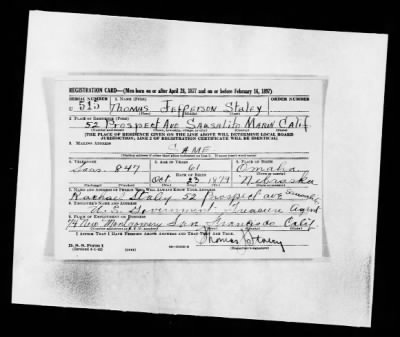 REGISTRATION CARD—(Men born on or after April 28, 1877 and on or before February 16, 1897)
SERIAL NUMBER 1. NAME (Print) ORDER NUMBER
515 Thomas Jefferson Staley
2. PLACE OF RESIDENCE (Print)
52 Prospect Ave Sausalito Marin Calif
[THE PLACE OF RESIDENCE GIVEN ON THE LINE ABOVE WILL DETERMINE LOCAL BOARD
JURISDICTION; LINE 2 OF REGISTRATION CERTIFICATE WILL BE IDENTICAL]
3. MAILING ADDRESS
SAME
4. TELEPHONE 5. AGE IN YEARS 6. PLACE OF BIRTH
Saus. 847 61 Omaha
DATE OF BIRTH
Oct 23 1879 Nebraska
7. NAME AND ADDRESS OF PERSON WHO WILL ALWAYS KNOW YOUR ADDRESS
Rachael Staley 52 Prospect ave
8. EMPLOYER'S NAME AND ADDRESS
U.S. Government Treasure Agent
9. PLACE OF EMPLOYMENT OR BUSINESS
74 New Montgomery San Francisco Calif
I AFFIRM THAT I HAVE VERIFIED ABOVE ANSWERS AND THAT THEY ARE TRUE.
D. S. S. Form 1
Thomas J Staley